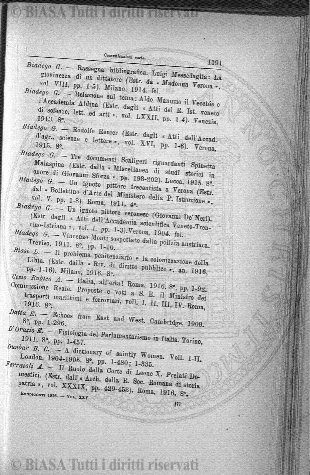 © BIASA Tutti i diritti riservati
Comunicazioni varie. 1391
Biadego G. — Rassegna bibliografica. Luigi Messedaglia: La
giovinezza di un dittatore (Estr. da « Madonna Verona »,
vol. VIII, pp. 1-5). Milano, 1914. 8º.
Biadego G. — Relazione sul tema: Aldo Manuzio il Vecchio e
l'Accademia Aldina (Estr. dagli « Atti del R. Ist. veneto
di scienze, lett. ed arti », vol. LXXII, pp. 1-4). Venezia,
1914. 8º.
Biadego G. — Rodolfo Renier (Estr. dagli « Atti dell'Accad.
d'agr., scienze e lettere », vol. XVI, pp. 1-6). Verona,
1915. 8º.
Biadego G. — Tre documenti Scaligeri riguardanti Spinetta
Malaspina (Estr. dalla « Miscellanea di studi storici in
onore di Giovanni Sforza », pp. 198-202). Lucca, 1915. 8º.
Biadego G. — Un ignoto pittore trecentista a Verona (Estr.
dal « Bollettino d'Arte del Ministero della P. Istruzione »,
vol. V, pp. 1-8). Roma, 1914. 4º.
Biadego G. — Un ignoto pittore veronese (Giovanni De'Neri).
(Estr. dagli « Atti dell'Accademia scientifica Veneto-Tren-
tino-Istriana », vol. I, pp. 1-3). Verona, 1904. fol.
Biadego G. — Vincenzo Monti sospettato dalla polizia austriaca.
Treviso, 1911. 8º, pp. 1-16.
L. — Il problema penitenziario e la colonizzazione della
Libia (Estr. dalla « Riv. di diritto pubblico », an. 1916,
pp. 1-16). Milano, 1916. 8º.
A. — Italia, all'armi! Roma, 1916. 8º, pp. 1-92.
Commissione Reale. Proposte e voti a S. E. il Ministro dei
trasporti marittimi e ferroviari, voll. I, II, III, IV. Roma,
1916. 8º.
Dutt — Echoes from East and West. Cambridge, 1909.
8º, pp. 1-286.
E. — Fisiologia del Parlamentarismo in Italia. Torino,
1911. 8º, pp. 1-457.
Dunbar B. C. — A dictionary of saintly Women. Voll. I-II.
London, 1904-1905. 8º, pp. 1-480; 1-335.
Ferrajoli A. — Il Ruolo della Corte di Leone X. Prelati Do-
mestici. (Estr. dall'« Arch. della R. Soc. Romana di storia
patria », vol. XXXIX, pp. 429-453). Roma, 1916, 8º.
Rendiconti 1916. — Vol. XXV
© BIASA Tutti i diritti riservati